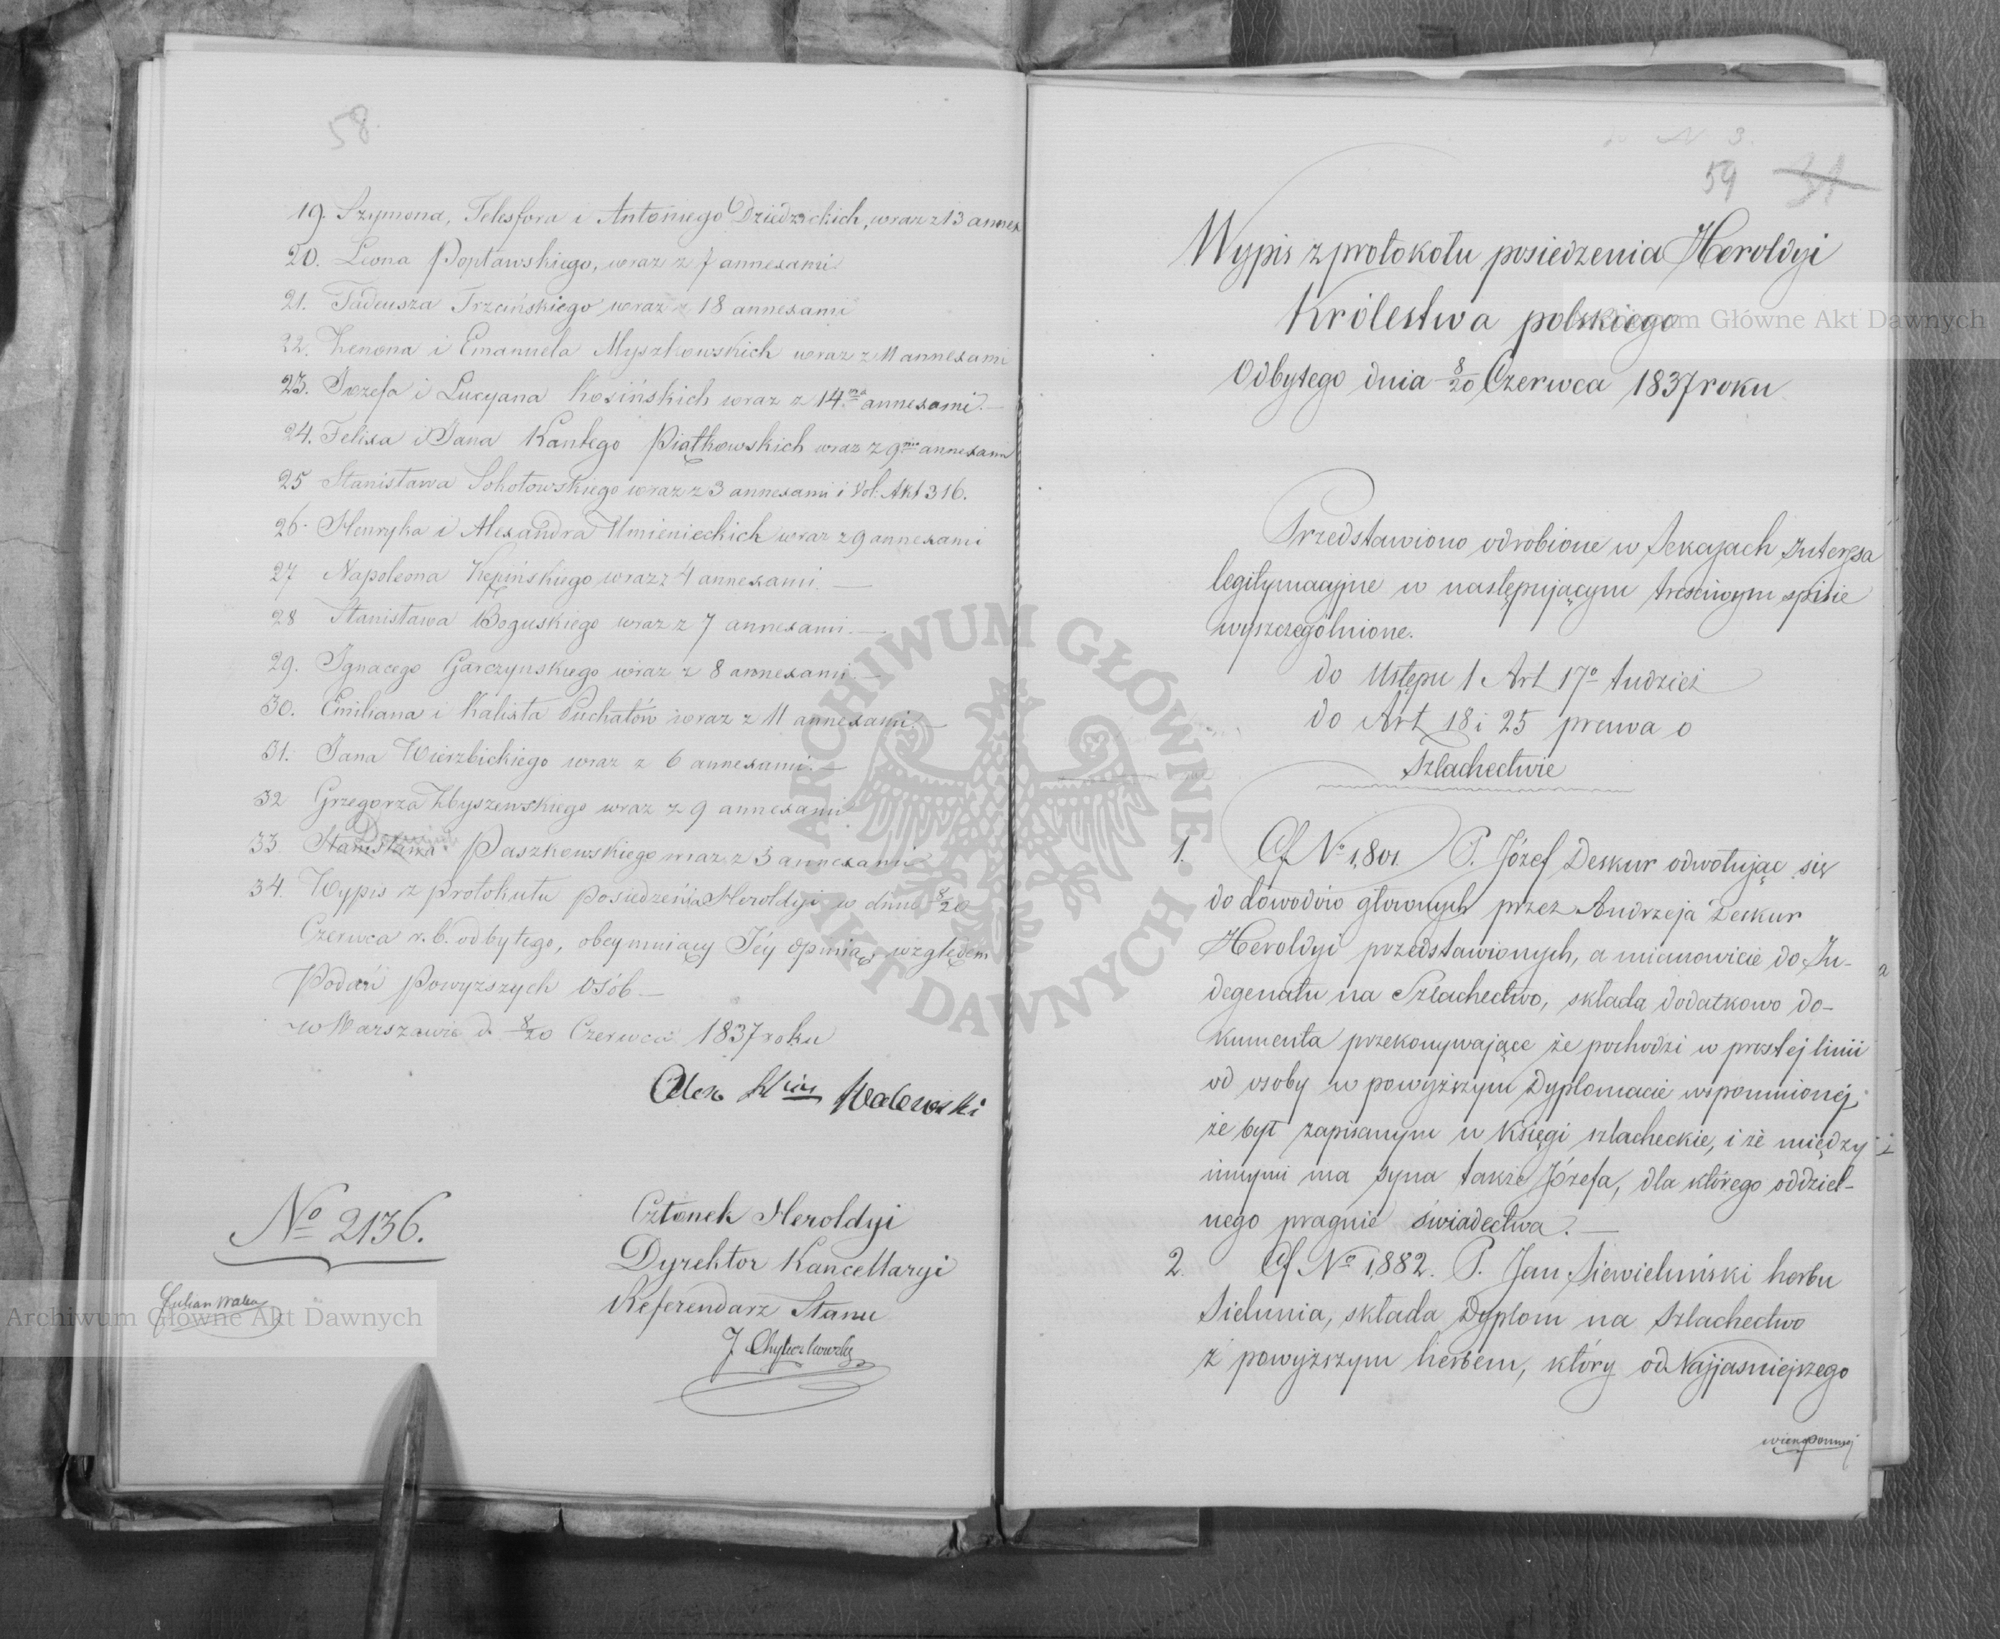 58.
19. Szymona, Telesfora i Antoniego Dziedzickich, wraz z 13 annex
20. Leona Popławskiego, wraz z 7 annexami
21. Tadeusza Trzcińskiego wraz z 18 annexami
22. Zenona i Emanuela Myszkowskich wraz z 11 annexami
23. Józefa i Lucyana Kosińskich wraz z 14ma annexami. —
24. Felixa i Jana Kantego Piątkowskich wraz z 9ma annexami
25 Stanisława Sokołowskiego wraz z 3 annexami i Vol. Akt 316.
26. Henryka i Alexandra Umienieckich wraz z 9 annexami
27 Napoleona Kępińskiego wraz z 4 annexami. —
28 Stanisława Boguskiego wraz z 7 annexami. —
29. Ignacego Garczynskiego wraz z 8 annexami. —
30. Emiliana i Kalixta Puchałów wraz z 11 annexami. —
31. Jana Wierzbickiego wraz z 6 annexami. —
32 Grzegorza Zbyszewskiego wraz z 9 annexami
33 Stanisława Paszkowskiego wraz z 3 annexami
34. Wypis z protokułu posiedzenia Heroldyi w dniu 8/20
Czerwca r. b. odbytego, obeymuiący Jéy opinią względem
Podań Powyższych Osób —
w Warszawie d. 8/20 Czerwca 1837 roku
Walewski
Członek Heroldyi
Dyrektor Kancellaryi
Referendarz Stanu
No 2136.
59 31
Wypis z protokołu posiedzenia Heroldyi
Królestwa polskiego
Odbytego dnia 8/20 Czerwca 1837 roku
Przedstawiono odrobione w Sekcjach Interesa
legitymacyjne w następującym treściwym spisie
wyszczególnione.
do Ustępu 1 Art 17o tudzież
do Art 18 i 25 prawa o
Szlachectwie
1. Cf No 1,801. P. Józef Deskur odwołując się
do dowodów głównych przez Andrzeja Deskur
Heroldyi przedstawionych, a mianowicie do In-
degenatu na Szlachectwo, składa dodatkowo do-
kumenta przekonywające że pochodzi w prostej linii
od osoby w powyższym Dyplomacie wspomnionej,
że był zapisanym w Księgi szlacheckie, i że między
innymi ma syna także Józefa, dla którego oddziel-
nego pragnie świadectwa. —
2. Cf No 1,882. P. Jan Siewieluński herbu
Sielunia, składa Dyplom na Szlachectwo
z powyższym herbem, który od Najjaśniejszego
Archiwum Główne Akt Dawnych
Archiwum Główne Akt Dawnych
ARCHIWUM GŁÓWNE · AKT DAWNYCH ·